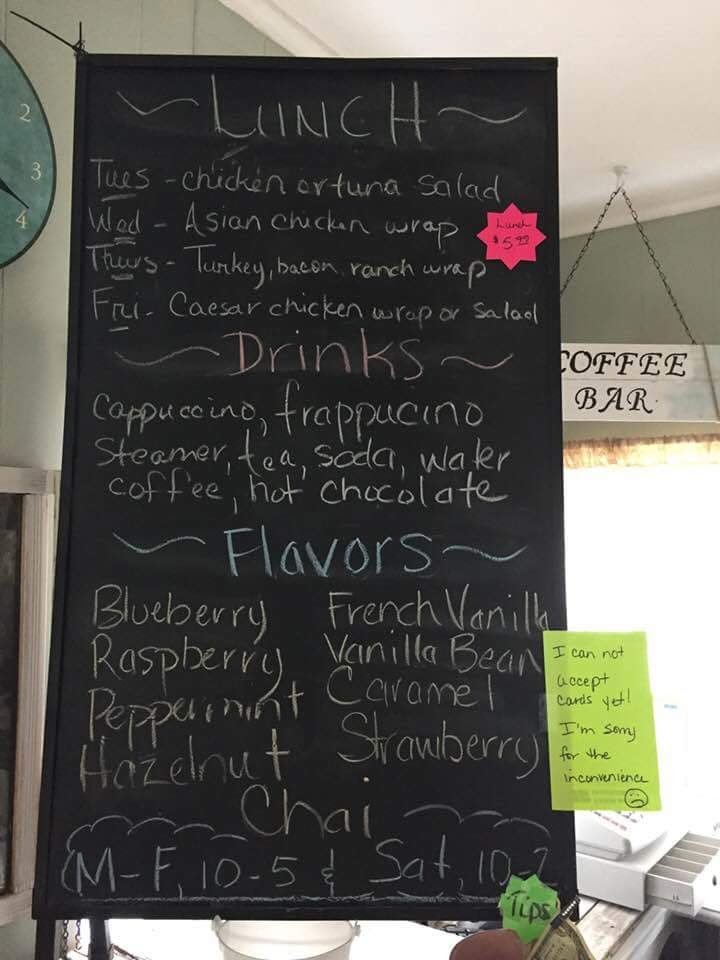 LUNCH
Tues - chicken or tuna salad
Wed - Asian chicken wrap
Thurs - Turkey, bacon, ranch wrap
Fri - Caesar chicken wrap or salad
Lunch
$5.99
Drinks
Cappuccino, frappucino
Steamer, tea, soda, water
coffee, hot chocolate
Flavors
Blueberry
Raspberry
Peppermint
Hazelnut
French Vanilla
Vanilla Bean
Caramel
Strawberry
Chai
M-F, 10-5 & Sat, 10-2
COFFEE
BAR
I can not
accept
cards yet!
I'm sorry
for the
inconvenience
Tips
2
3
4